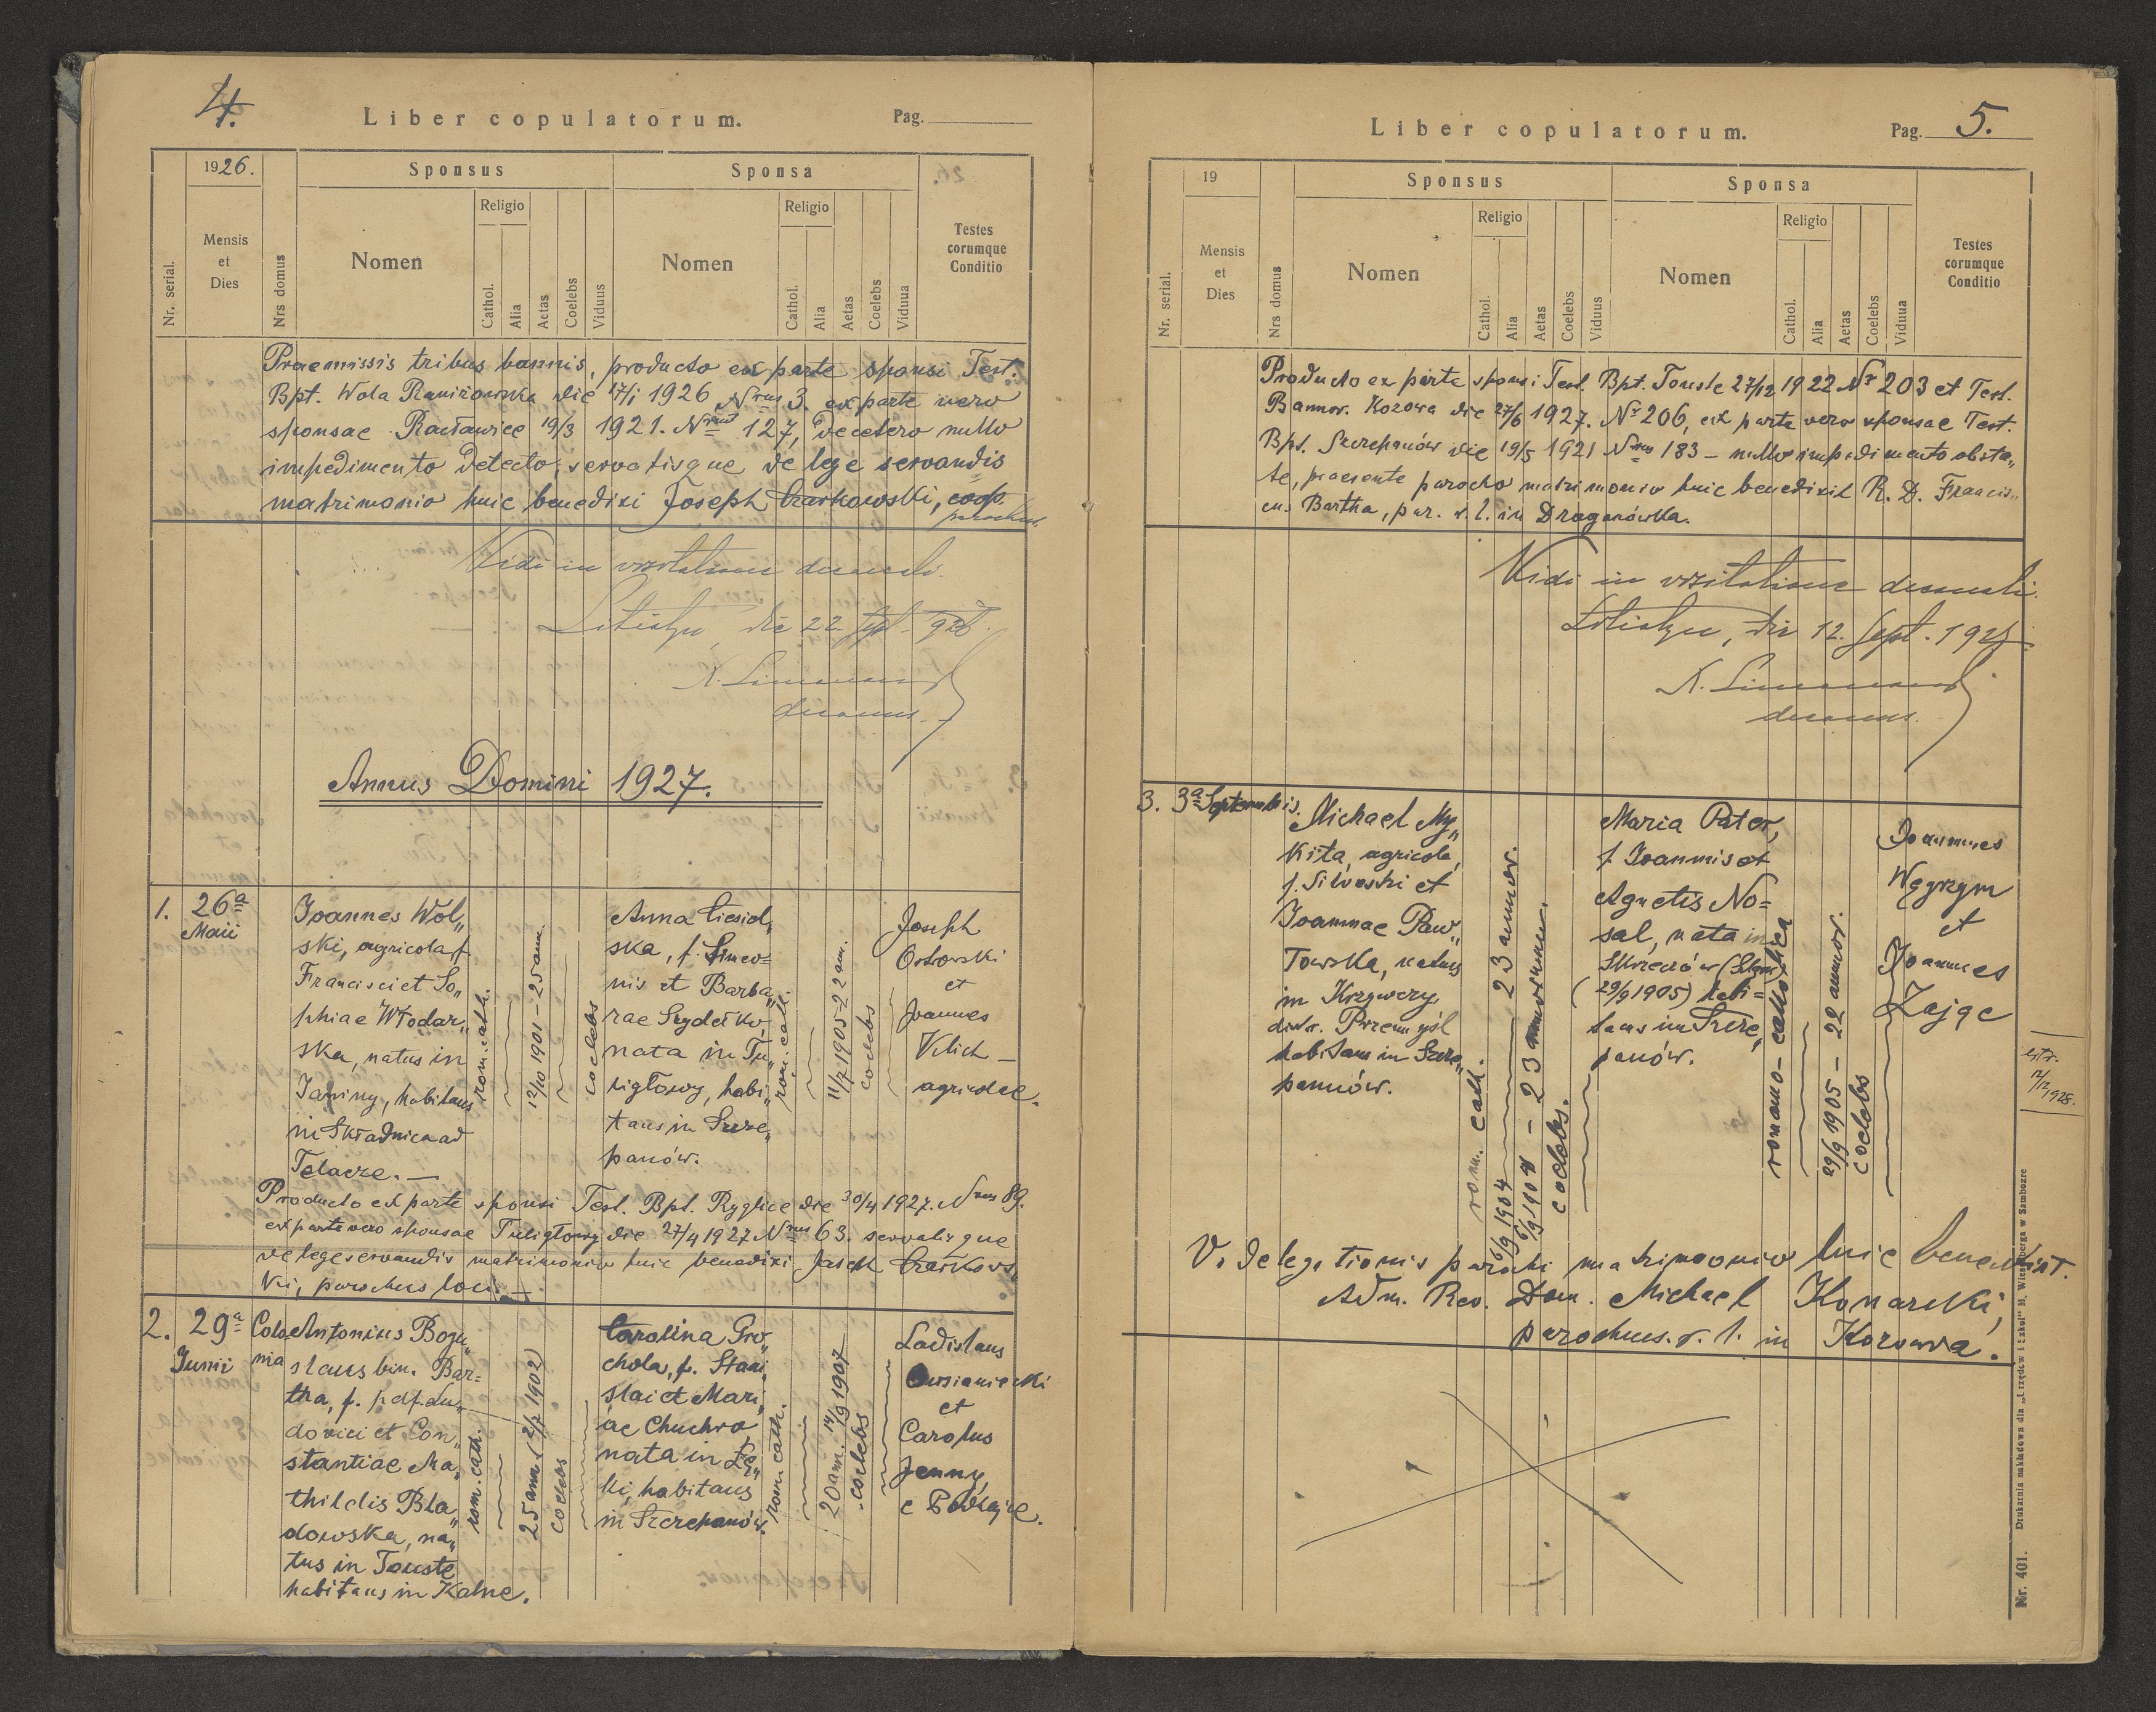 4.
Liber copulatorum.
Pag.
1926.
Sponsus
Sponsa
Nr. serial.
Mensis
et
Dies
Nrs domus
Nomen
Religio
Cathol.
Alia
Aetas
Coelebs
Viduus
Nomen
Religio
Cathol.
Alia
Aetas
Coelebs
Vidua
Testes
eorumque
Conditio
Praemissis tribus bannis, producto ex parte sponsi Test.
Bpt. Wola Raniżowska die 17/I 1926 Nrus 3. ex parte vero
sponsae Racławice 19/3 1921. Nrus 127, de cetero nullo
impedimento detecto, servatisque de lege servandis
matrimonio huic benedixi Joseph Czaikowski, coop.
parochus
Vidi in visitatione decanali.
die 22 Sept. 926.
decanus.
Annus Domini 1927.
1. 26a
Maii
Joannes Wol„
ski, agricola, f.
Francisci et So„
phiae Włodar„
ska, natus in
Janiny, habitans
in Składnica ad
rom. cath.
12/10 1901 – 25 ann.
coelebs
Anna Ciesiel„
ska, f. Simeo=
nis et Barba„
rae Szydełko
nata in Tu„
ligłowy, habi„
tans in Szcze„
panów.
rom. cath.
11/7 1905 – 22 ann.
coelebs
Joseph
Ostrowski
et
Joannes
Vilich –
agricolae.
Producto ex parte sponsi Test. Bpt. Ryglice die 30/4 1927. Nrus 89.
ex parte vero sponsae Tuligłowy die 27/4 1927 Nrus 63. servatisque
de lege servandis matrimonio huic benedixi Joseph Czaikows„
ki, parochus loci. –
2. 29a
Junii
Colo
nia
Antonius Bogu„
slaus bin. Bar=
tha, f. p. df. Lu„
dovici et Con„
stantiae Ma„
thildis Bła„
dowska, na„
tus in Touste
habitans in Kalne.
rom. cath.
25 ann. (2/7 1902)
coelebs
Carolina Gro„
chola, f. Stani„
slai et Mari„
ae Chuchro,
nata in Łę„
ki, habitans
in Szczepanów.
rom. cath.
20 ann. 14/9 1907
coelebs
Ladislaus
Owsianiecki
et
Carolus
Jenny,
e Podhajce.
Liber copulatorum.
Pag. 5.
19
Sponsus
Sponsa
Nr. serial.
Mensis
et
Dies
Nrs domus
Nomen
Religio
Cathol.
Alia
Aetas
Coelebs
Viduus
Nomen
Religio
Cathol.
Alia
Aetas
Coelebs
Viduua
Testes
eorumque
Conditio
Producto ex parte sponsi Test. Bpt. Touste 27/12 1922 Nr 203 et Test.
Bannor. Kozowa die 27/6 1927. Nr 206, ex parte vero sponsae Test.
Bpt. Szczepanów die 19/5 1921 Nrus 183 – nullo impedimento obsta„
te, praesente parocho matrimonio huic benedixit R. D. Francis„
cus Bartha, par. r. l. in Draganówka.
Vidi in visitatione decanali.
die 12. Sept. 192
decanus.
3. 3a Septembris.
Michael My„
kita, agricola,
f. Silvestri et
Joannae Paw„
łowska, natus
in Krzywczy,
distr. Przemyśl
habitans in Szcze„
panów.
rom. cath.
6/9 1904 – 23 annor.
6/9 1904 – 23 annorum.
coelebs.
Maria Pater,
f. Joannis et
Agnetis No=
sal, nata in
(29/9 1905) habi=
tans in Szcze„
panów.
romano-catholica
29/9 1905 – 22 annor.
coelebs
Joannes
Węgrzyn
et
Joannes
Zając
12/12 1928.
V. delegationis parochi matrimonio huic benedixit
Adm. Rev. Dom. Michael Konarski,
parochus. r. l. in Kozowa.
Nr. 401. Drukarnia nakładowa dla „Urzędów i szkół" H. Wiesenberga w Samborze